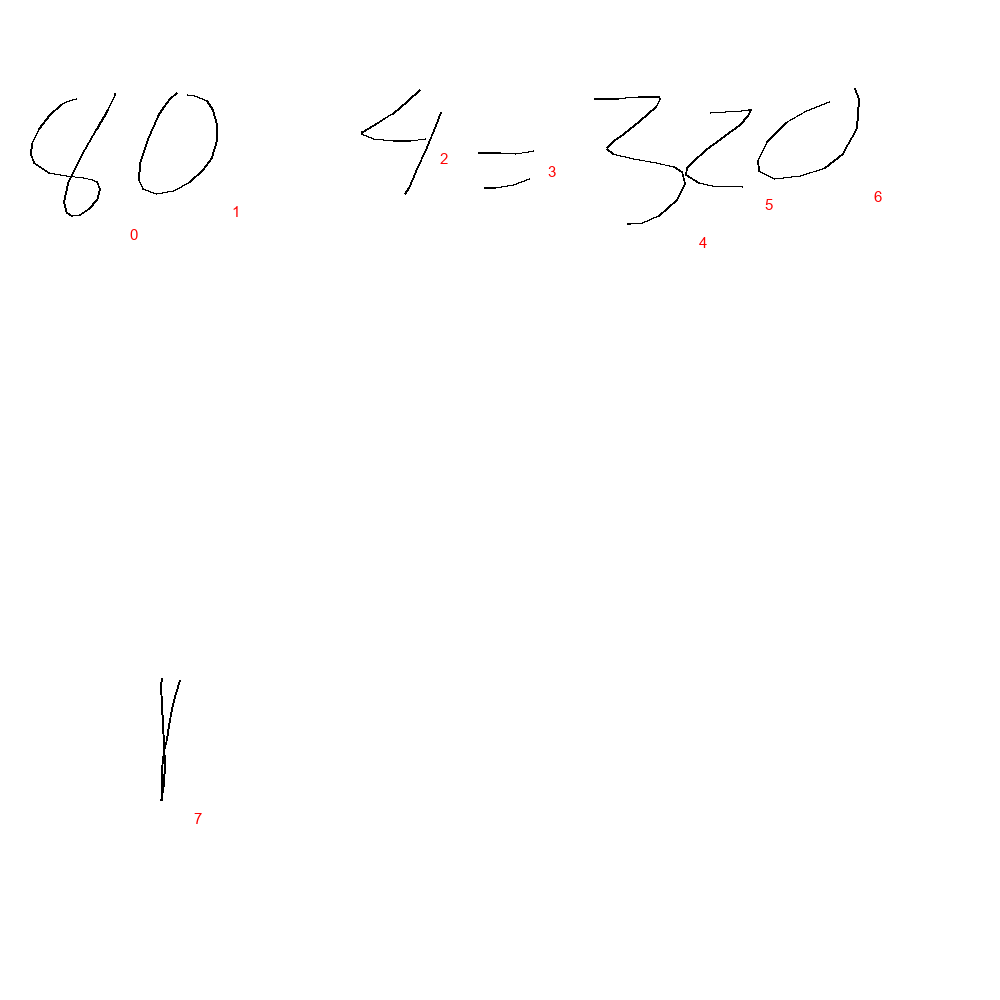 80 4=320
0 1 2 3 4 5 6
7